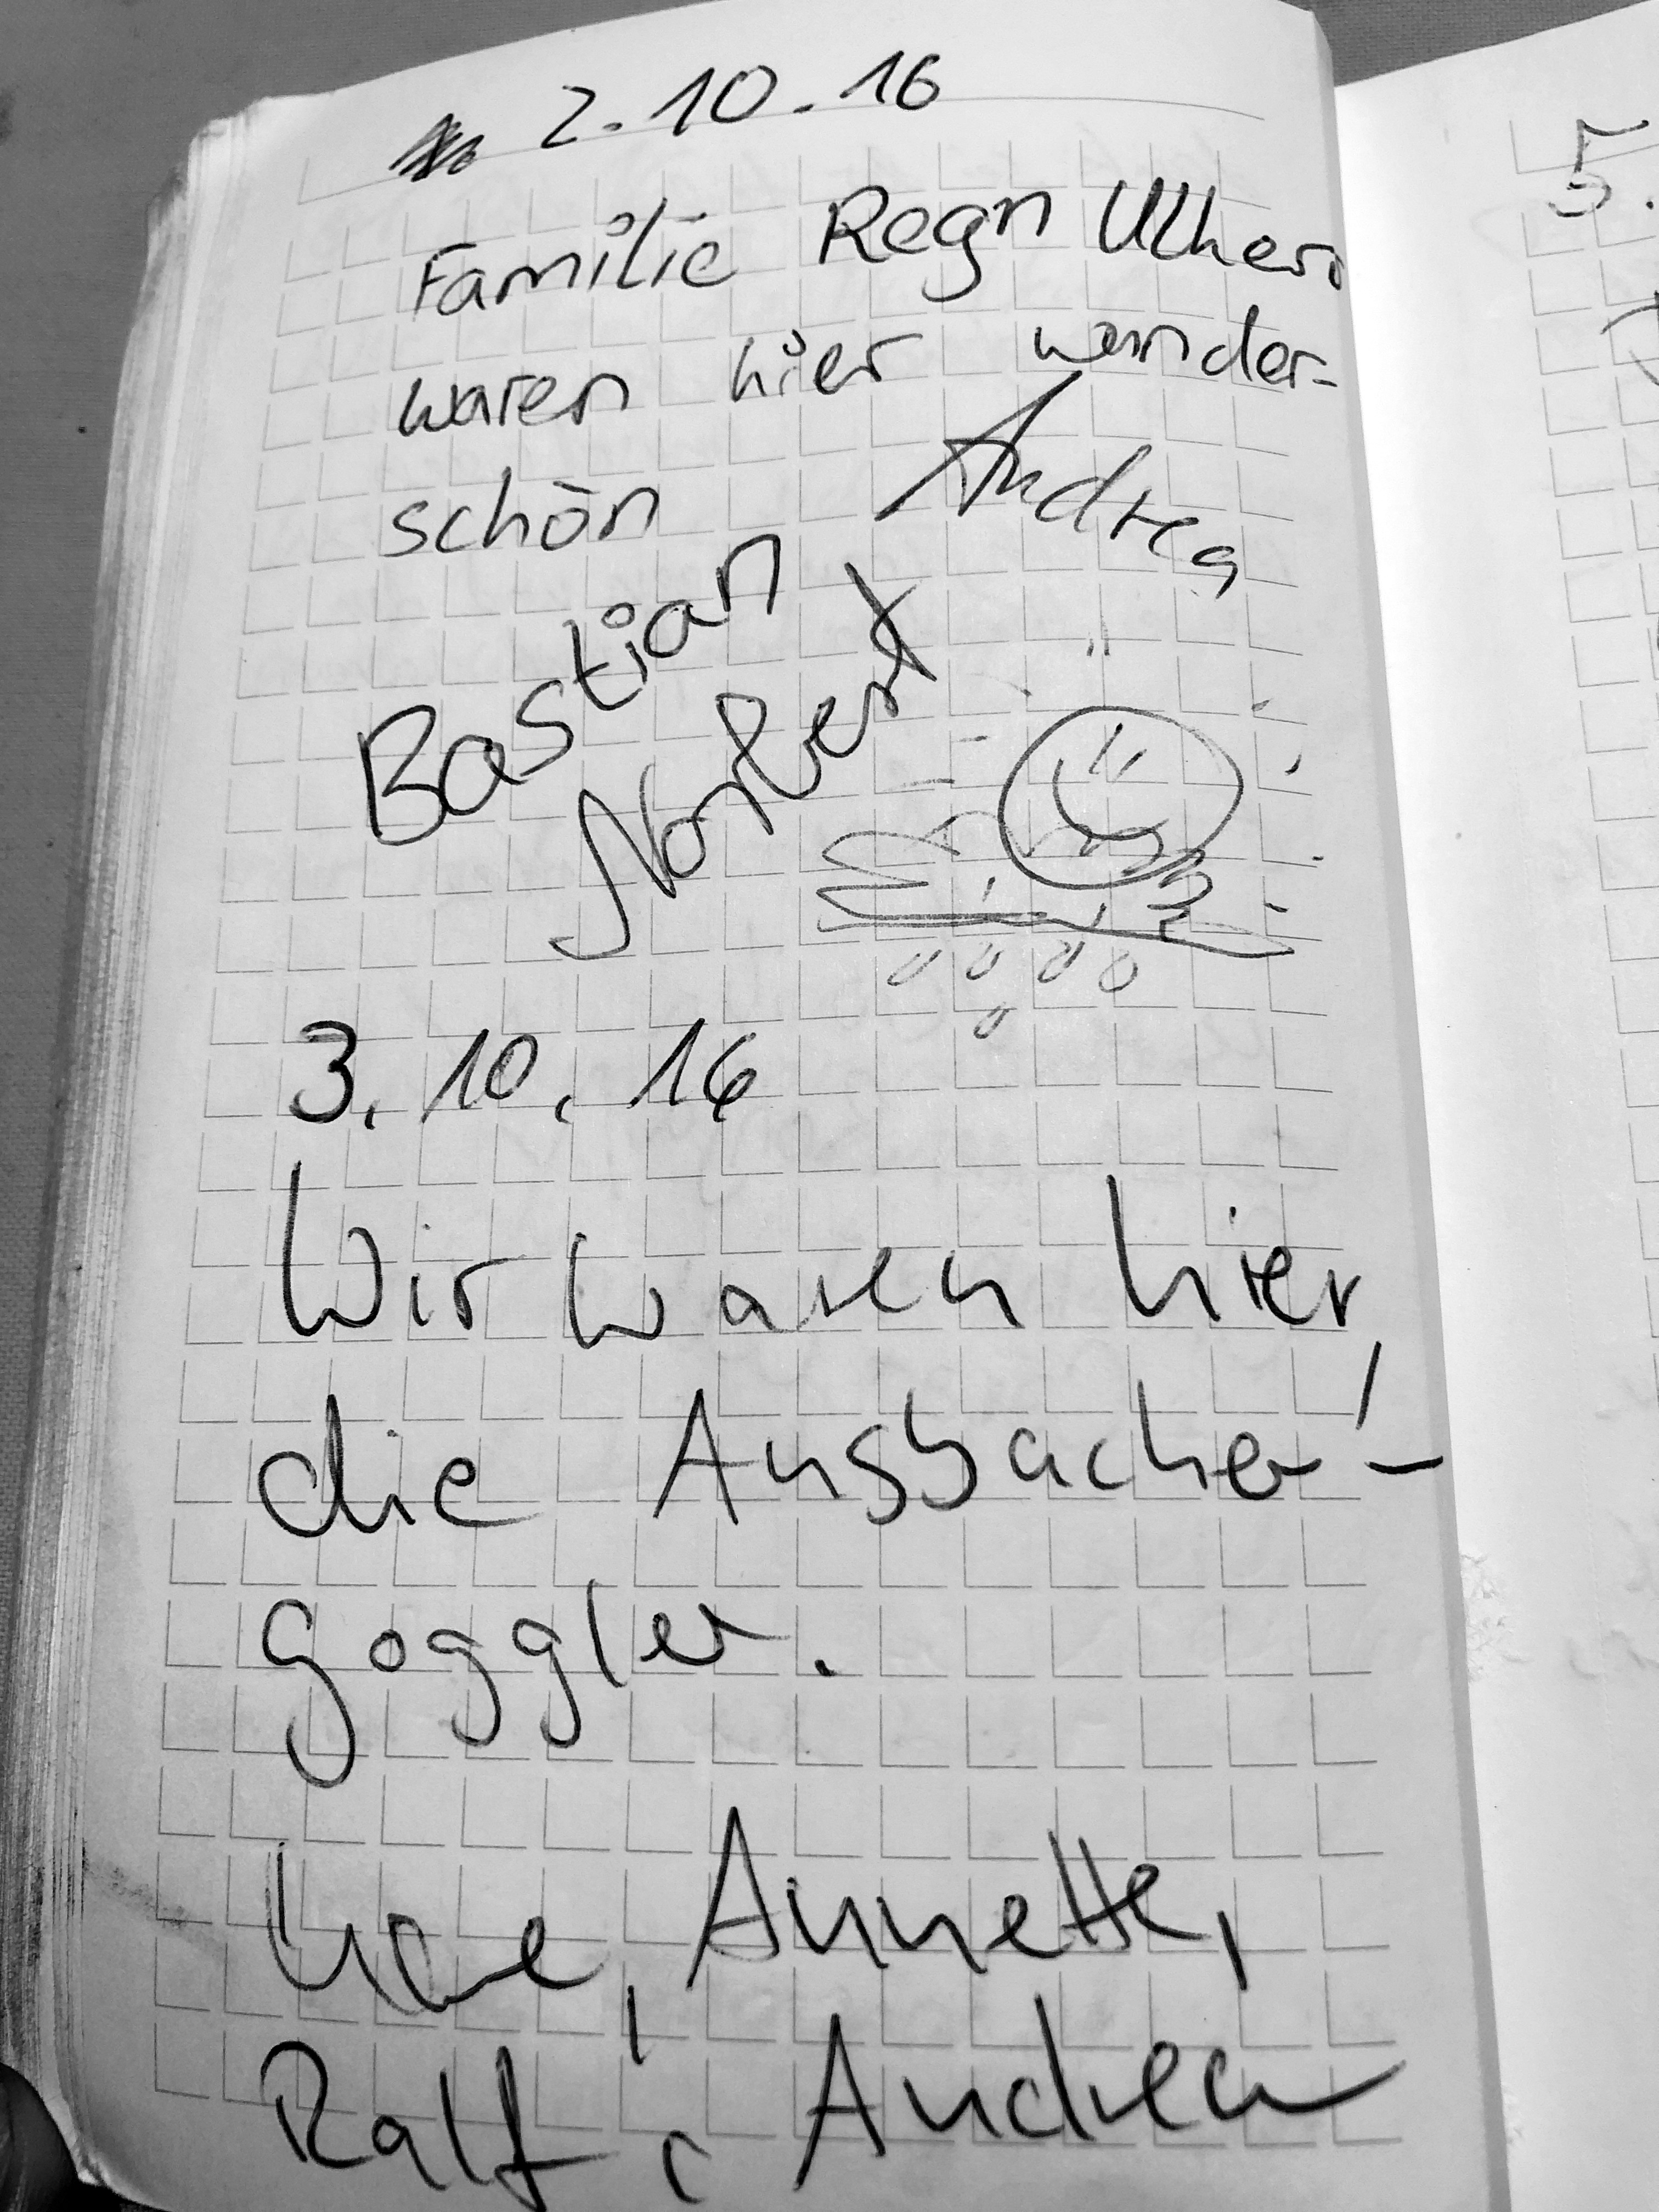 2.10.16
Familie Regn
waren hier wunder-
schön
Andrea
Bastian
Norbert
3.10.16
Wir waren hier,
die Ansbacher-
Goggler.
Uwe, Annette,
Ralf, Andrea
5.